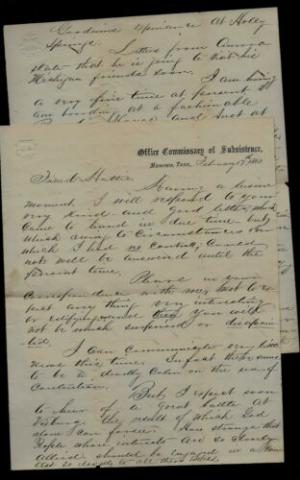 Goodwind experience at Holly
Springs. Letters from Omega
state that he is going to visit his
Michigan friends soon. I am having
a very fine time at present I
am boarding at a fashionable
House and just at
Office Commissary of Subsistence,
Memphis, Tenn., February 1863
Friend Hattie
Having a leisure
moment I will respond to your
very kind and good letter, which
came to hand in due time but
which owing to circumstances over
which I had no control, could
not well be answered until the
present time.
Please in your
correspondence with me, not to ex
pect any thing very interesting
or edifying, and then you will
not be much surprised or disappoin
ted.
I can communicate very little
news this time. In fact there seems
to be a deadly calm on the sea of
But I expect soon
to hear of a great battle at
Vicksburg the result of which God
alone can foresee. How strange that
People whose interests are so closely
Allied should be engaged in a